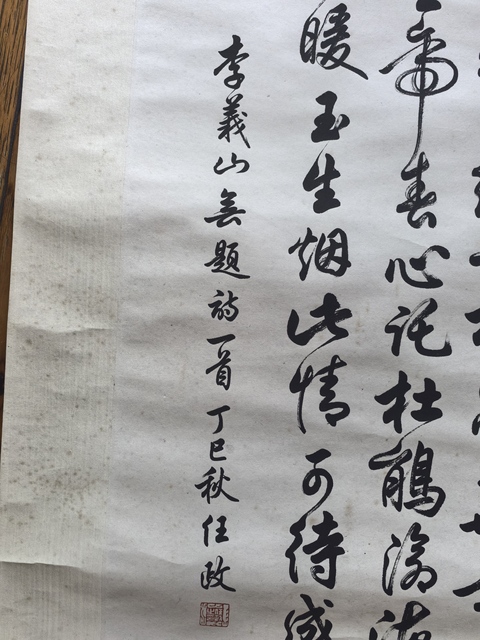 帝春心託杜鵑滄海
暖玉生烟此情可待成
李義山無題詩一首 丁巳秋任政